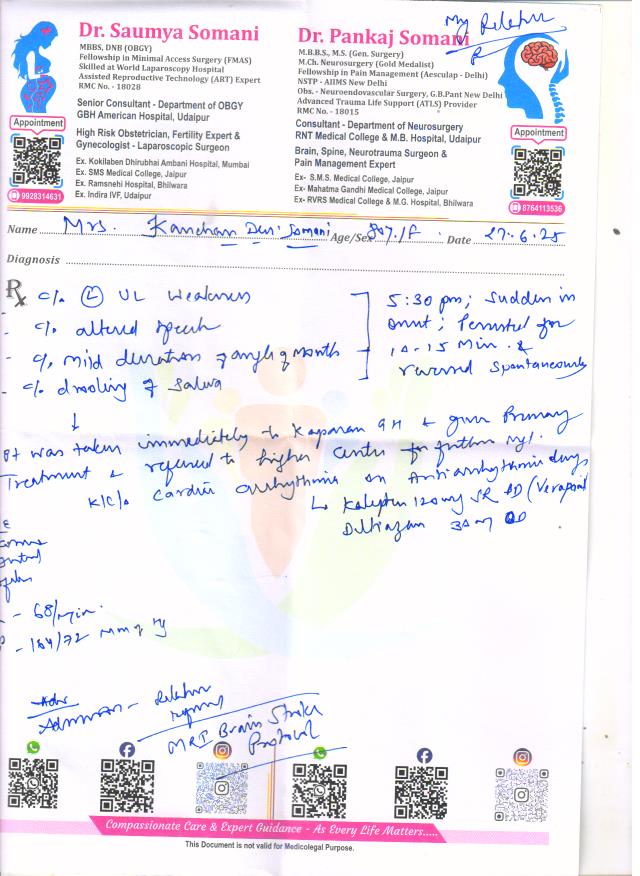 My Relative
Dr. Saumya Somani
MBBS, DNB (OBGY)
Fellowship in Minimal Access Surgery (FMAS)
Skilled at World Laparoscopy Hospital
Assisted Reproductive Technology (ART) Expert
RMC No. - 18028
Senior Consultant - Department of OBGY
GBH American Hospital, Udaipur
High Risk Obstetrician, Fertility Expert &
Gynecologist - Laparoscopic Surgeon
Ex. Kokilaben Dhirubhai Ambani Hospital, Mumbai
Ex. SMS Medical College, Jaipur
Ex. Ramsnehi Hospital, Bhilwara
Ex. Indira IVF, Udaipur
Appointment
9928314631
Dr. Pankaj Somani
M.B.B.S., M.S. (Gen. Surgery)
M.Ch. Neurosurgery (Gold Medalist)
Fellowship in Pain Management (Aesculap - Delhi)
NSTP - AIIMS New Delhi
Obs. - Neuroendovascular Surgery, G.B.Pant New Delhi
Advanced Trauma Life Support (ATLS) Provider
RMC No. - 18015
Consultant - Department of Neurosurgery
RNT Medical College & M.B. Hospital, Udaipur
Brain, Spine, Neurotrauma Surgeon &
Pain Management Expert
Ex- S.M.S. Medical College, Jaipur
Ex- Mahatma Gandhi Medical College, Jaipur
Ex- RVRS Medical College & M.G. Hospital, Bhilwara
Appointment
8764113536
Name Mrs. Kanchan Devi Somani Age/Sex 80y./F Date 27.6.25
Diagnosis
Rx c/o (L) UL weakness
- c/o altered speech
- c/o mild deviation of angle of mouth
- c/o drooling of saliva
5:30 pm; Sudden in
onset; Persisted for
10-15 min. &
reversed spontaneously
↓
Pt was taken immediately to Kapasan GH & given Primary
Treatment & referred to higher centre for further
K/C/o cardiac arrhythmia on Antiarrhythmic drugs
↳ 120mg SR (Verapamil
Diltiazem 30mg
- 68/min.
- 184/72 mm of Hg
Adv
Admission - Relative
MRI Brain Stroke
Protocol
Compassionate Care & Expert Guidance - As Every Life Matters.....
This Document is not valid for Medicolegal Purpose.